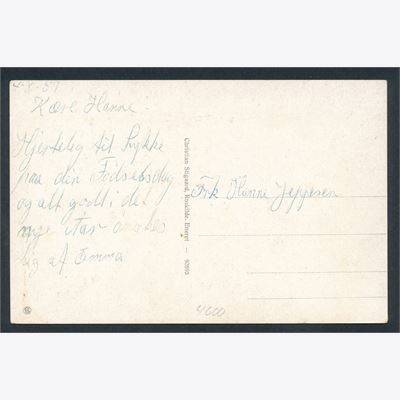 4-8-51
Kære Hanne!
Hjertelig til Lykke
paa din Fødselsdag
og alt godt i det
nye Aar ønskes
dig af Emma
Christian Stigaard, Roskilde, Eneret — 93093
Frk Hanne Jeppesen
4600